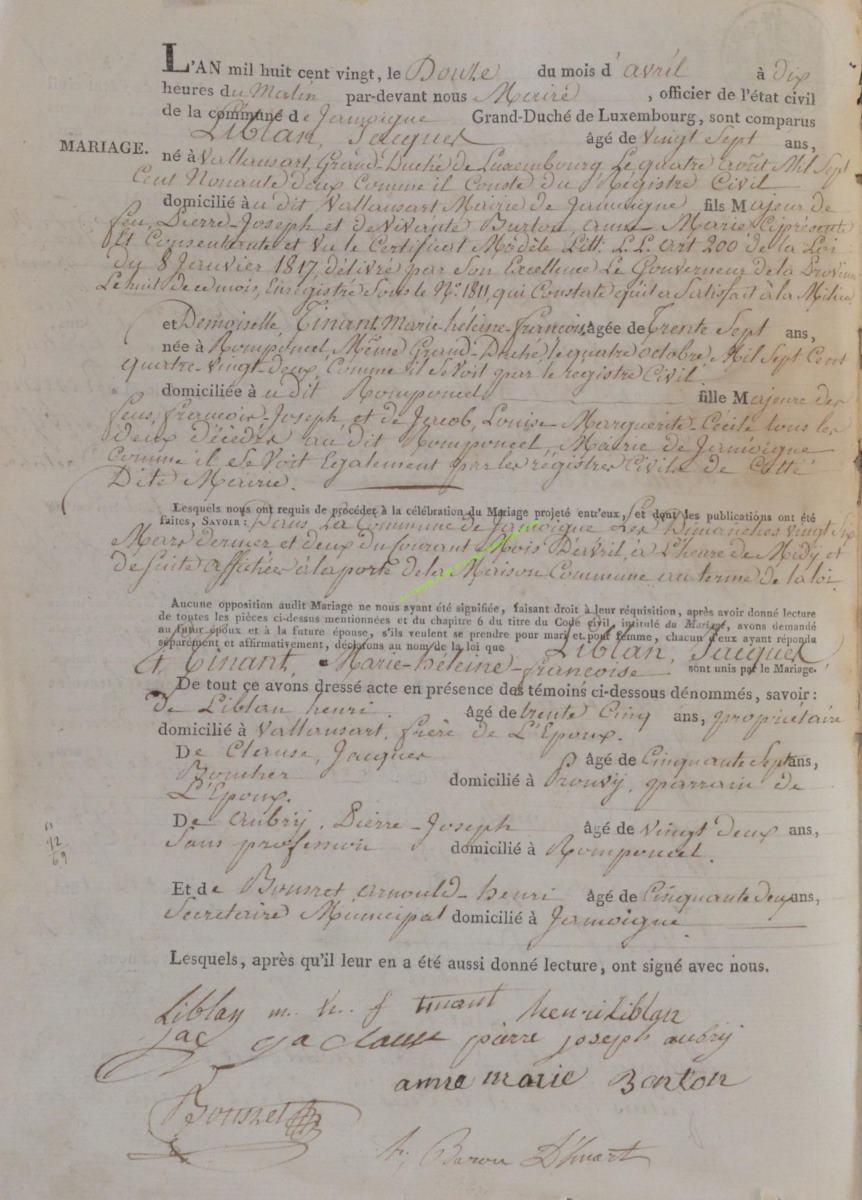 L'AN mil huit cent vingt, le Douze du mois d'avril à dix
heures du Matin par-devant nous Maire, officier de l'état civil
de la commune de Jamoigne Grand-Duché de Luxembourg, sont comparus
Liblan, Jacques âgé de vingt Sept ans,
MARIAGE.
né à Vallansart, Grand-Duché de Luxembourg Le quatre août Mil Sept
Cent Nonante deux Comme il Conste du Registre Civil
domicilié àu dit Vallansart Mairie de Jamoigne fils Majeur de
feu, Pierre-Joseph et de vivante Burton, anne-Marie Ciprésente
Et Consentante et vu le Certificat Modèle Litt. L.L. art 200 de la Loi
du 8 Janvier 1817, délivré par Son Excellence Le Gouverneur de la Province
Le huit de ce mois, Enregistré Sous le N.º 1811, qui Constate qu'il a Satisfait à la Milice
et Demoiselle, Tinant, Marie-héleine-francoise, âgée de Trente Sept ans,
née à Romponcel, Même Grand-Duché, le quatre octobre Mil Sept Cent
quatre-vingt-deux, Comme il Se Voit par le registre Civil
domiciliée àu dit Romponcel fille Majeure des
feus, francois-Joseph, et de Jacob, Louise-Marguerite-Cecile tous les
deux décédés au dit Romponcel, Mairie de Jamoigne
Comme il Se Voit Egalement par les régistres Civils de Cette
Dite Mairie.
Lesquels nous ont requis de procéder à la célébration du Mariage projeté entr'eux, et dont les publications ont été
faites, SAVOIR: Dans La Commune de Jamoigne Les Dimanches vingt Six
Mars dernier et deux du Courant Mois D'avril, à L'heure de Midy, et
de Suite affichées à la porte de la Maison Commune au terme de la loi
Aucune opposition audit Mariage ne nous ayant été signifiée, faisant droit à leur réquisition, après avoir donné lecture
de toutes les pièces ci-dessus mentionnées et du chapitre 6 du titre du Code civil, intitulé du Mariage, avons demandé
au futur époux et à la future épouse, s'ils veulent se prendre pour mari et pour femme, chacun d'eux ayant répondu
séparément et affirmativement, déclarons au nom de la loi que Liblan, Jacques
Et Tinant, Marie-héleine-francoise sont unis par le Mariage.
De tout ce avons dressé acte en présence des témoins ci-dessous dénommés, savoir:
De Liblan henri âgé de trente Cinq ans, propriétaire
domicilié à Vallansart, frère de L'Epoux.
De Clause, Jacques âgé de Cinquante Sept ans,
Boucher domicilié à Prouvy, parrain de
L'Epoux.
De Aubry, Pierre-Joseph âgé de vingt deux ans,
Sans profession domicilié à Romponcel.
12
69
Et de Bonnet arnould-henri âgé de Cinquante deux ans,
Secretaire Municipal domicilié à Jamoigne
Lesquels, après qu'il leur en a été aussi donné lecture, ont signé avec nous.
Liblan m. h. f tinant henri Liblan
Jac Ja Clause pierre joseph aubry
anne marie Borton
Bonnet
Baron D'huart